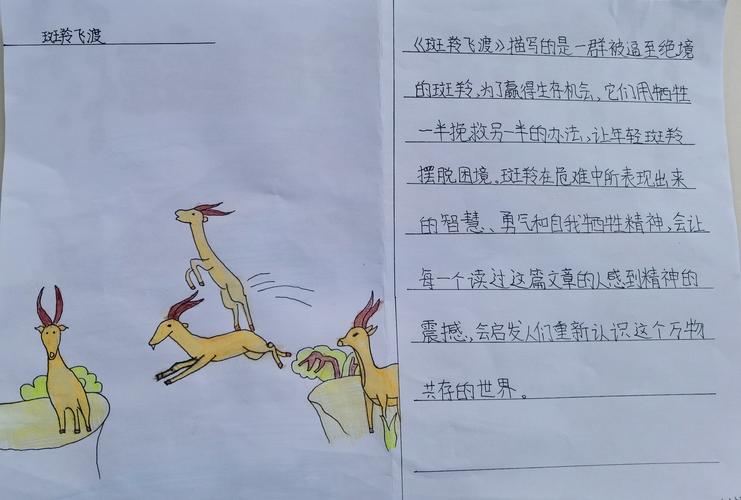 斑羚飞渡
《斑羚飞渡》描写的是一群被逼至绝境
的斑羚,为了赢得生存机会,它们用牺牲
一半挽救另一半的办法,让年轻斑羚
摆脱困境。斑羚在危难中所表现出来
的智慧、勇气和自我牺牲精神,会让
每一个读过这篇文章的人感到精神的
震撼,会启发人们重新认识这个万物
共存的世界。